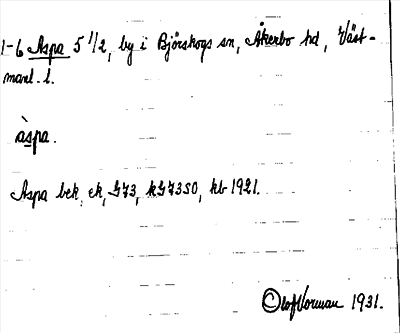 1-6 Aspa 5 1/2, by i Björskogs sn, Åkerbo hd, Väst-
manl. l.
àspa.
Aspa bek, ek, G73, kG73SO, kb 1921.
Olof Vorman 1931.